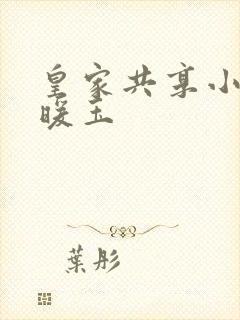 皇家共享小
暖玉
葉彤